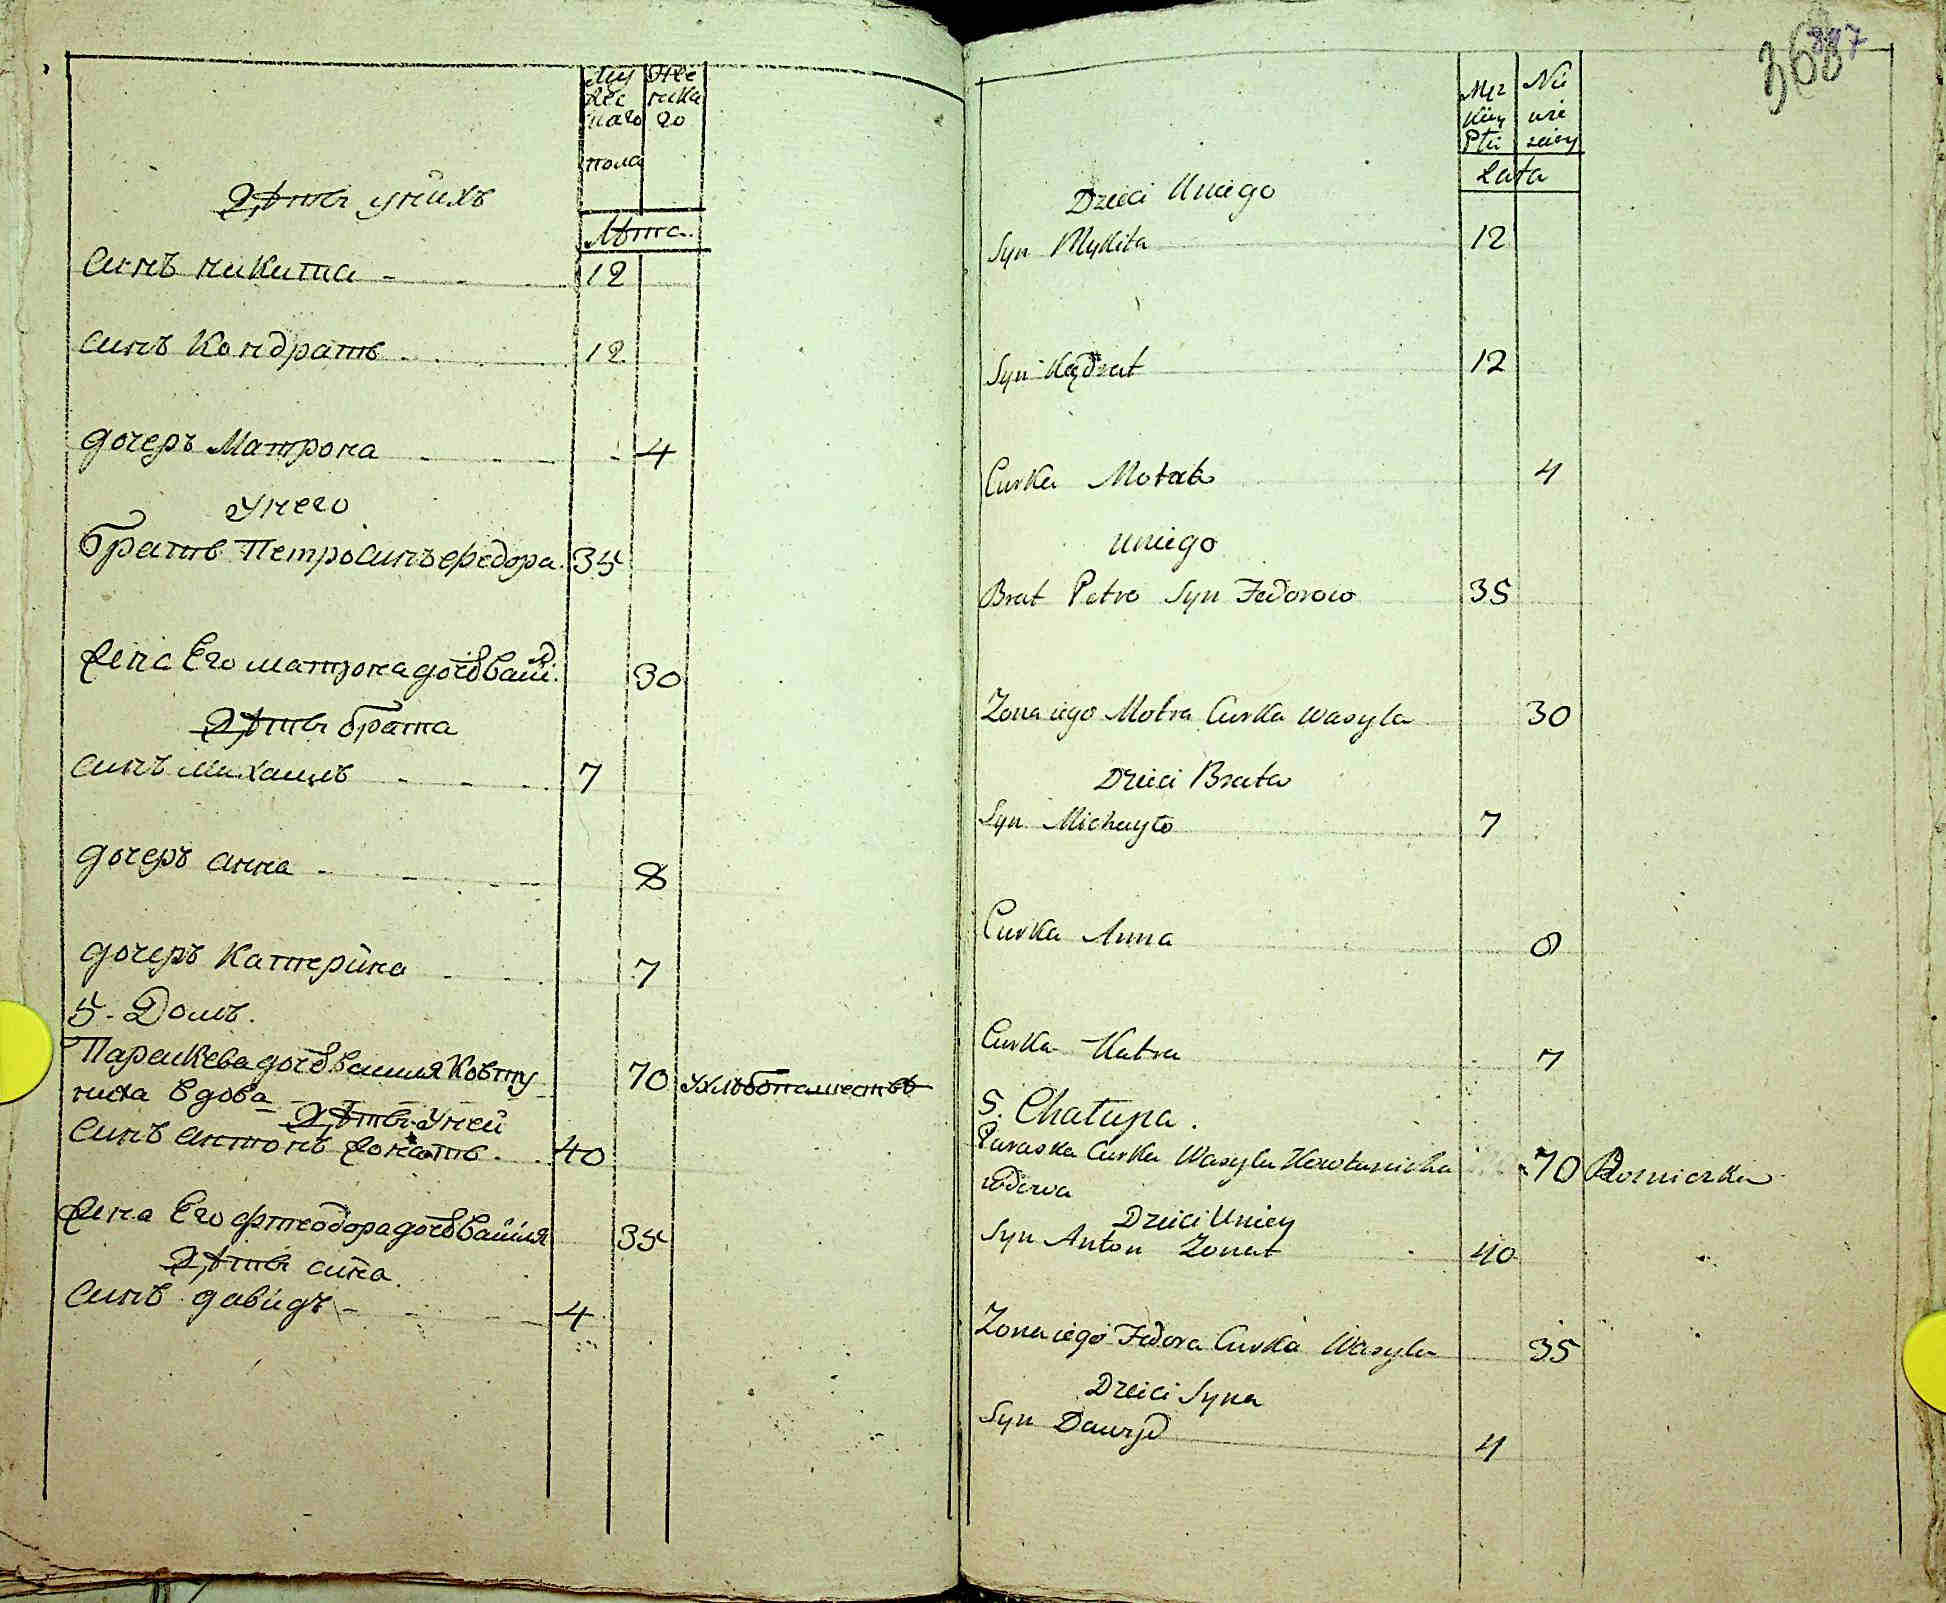 Му Же
жес ника
каго го
пола
Дѣти унихъ
Лѣта
синъ никита 12
синъ Кондратъ 12
дочеръ Матрона 4
Унего
братъ Петро синъ Федора 35
жена Его матрона доч Васи 30
Дѣти брата
синъ Михаилъ 7
дочеръ анна 8
дочеръ Катерина 7
5. Домъ.
Парашкева доч Василя Ковту
ниха вдова 70
Дѣти Уней
синъ антонъ жонатъ 40
жена Его фтеодора доч Василя 35
Дѣти сина
синъ давидъ 4
3687
Męz Nie
kiey wie
Płci sciey
Lata
Dzieci Uniego
Syn Mykita 12
Syn Kądrat 12
Curka Motra 4
Uniego
Brat Petro Syn Fedorow 35
Zona iego Motra Curka Wasyla 30
Dzieci Brata
Syn Michayło 7
Curka Anna 8
Curka Katra 7
5. Chałupa.
Paraska Curka Wasyla Kowtunicha 70 Rolniczka
wdowa
Dzieci Uniey
Syn Anton Zonat 40
Zona iego Fedora Curka Wasyla 35
Dzieci Syna
Syn Dawyd 4